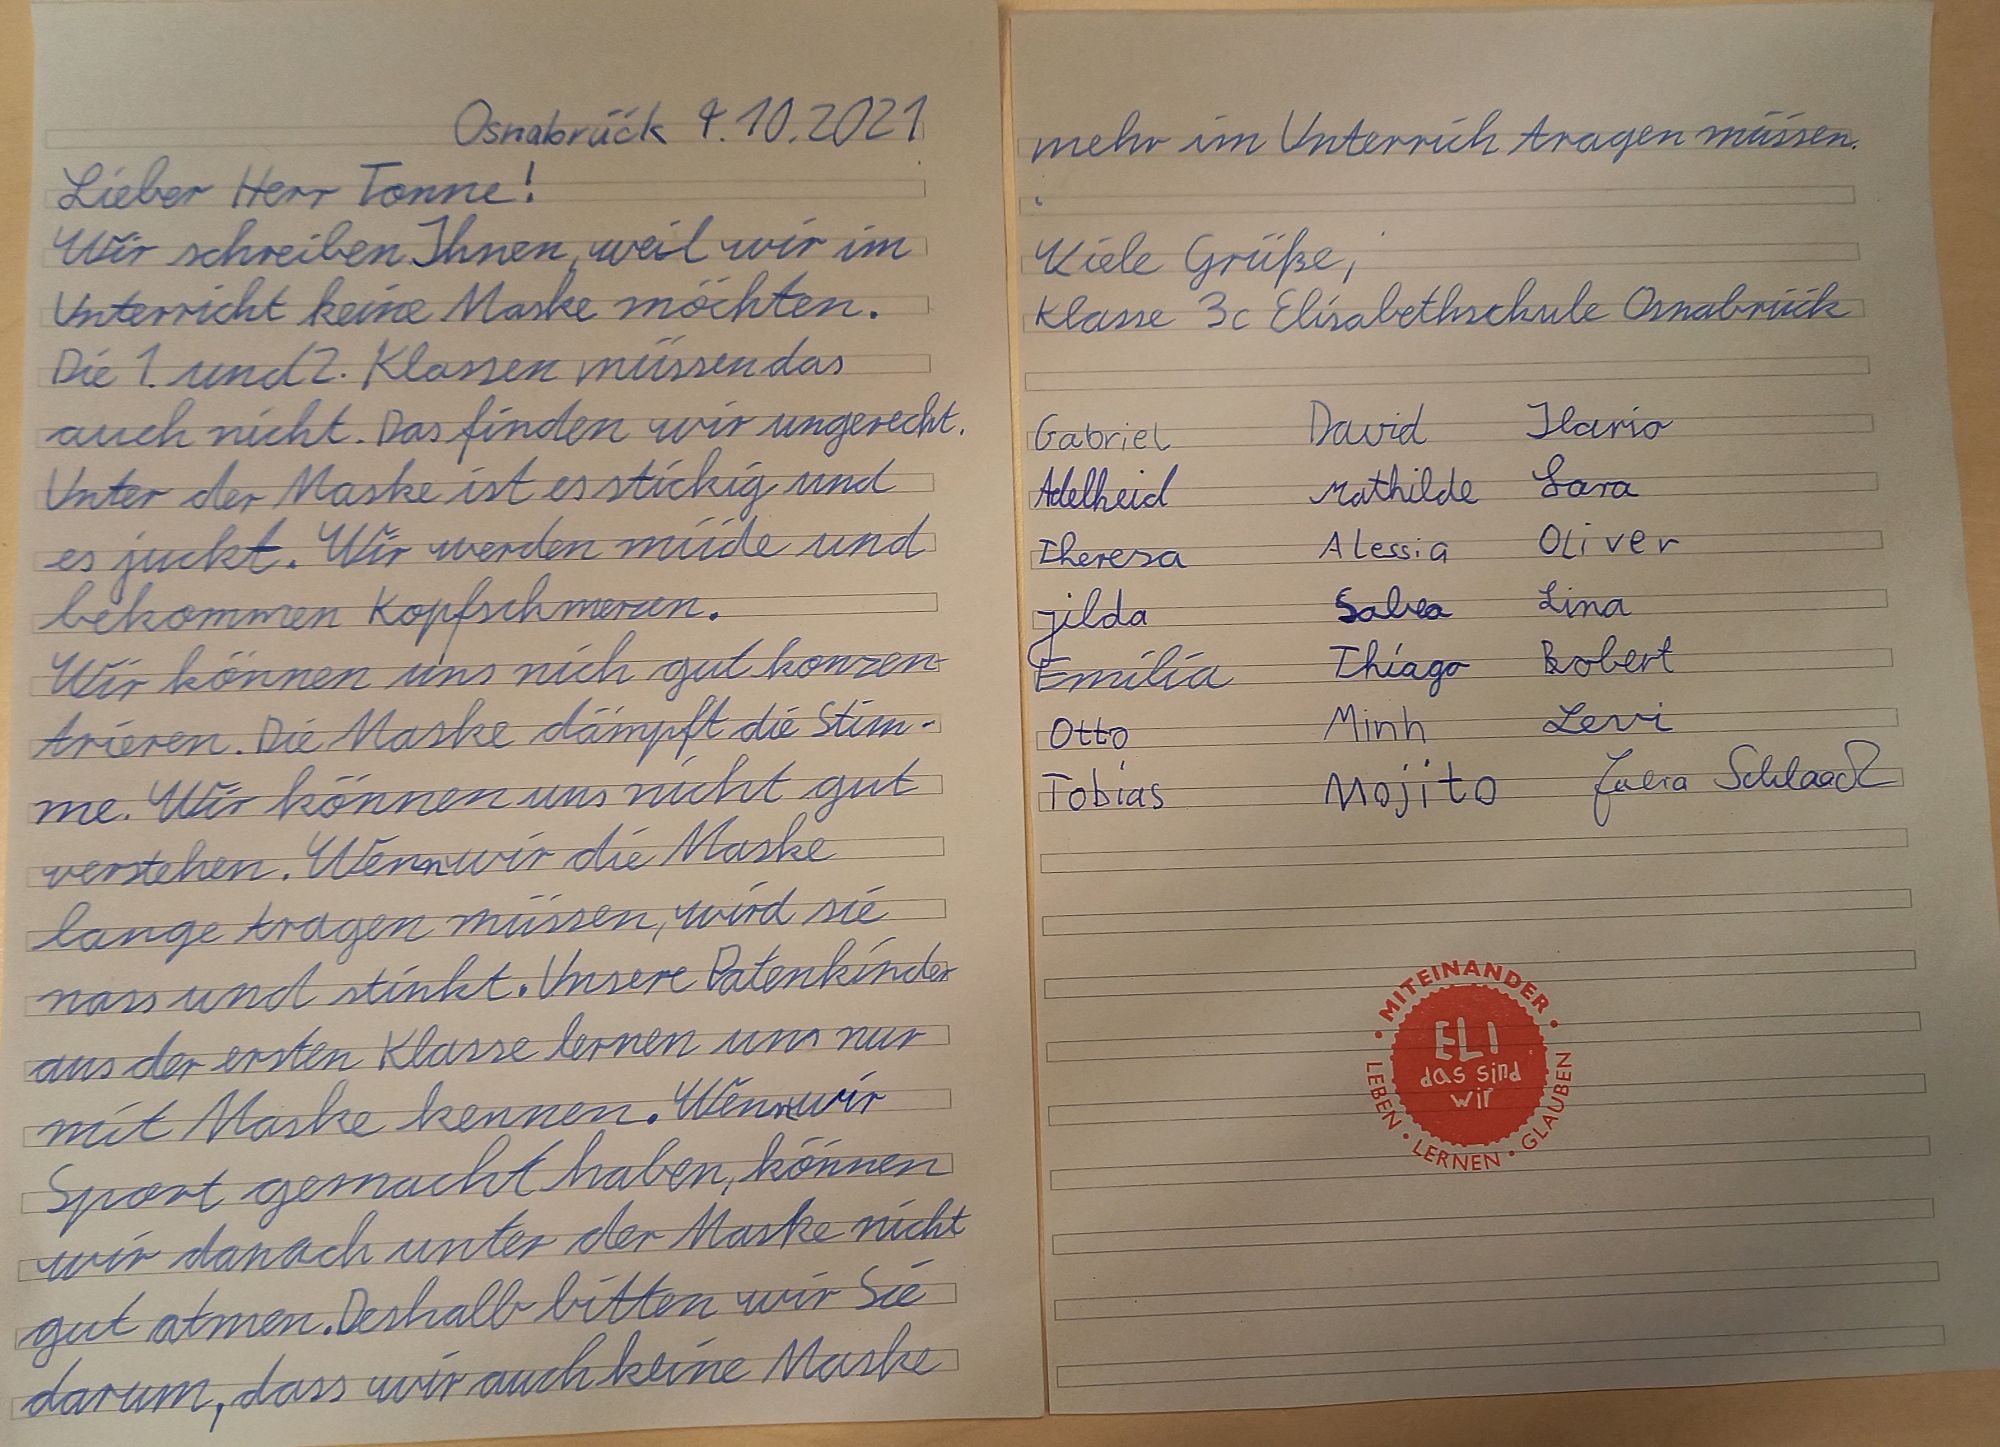 Osnabrück 4.10.2021
Lieber Herr Tonne!
Wir schreiben Ihnen, weil wir im
Unterricht keine Maske möchten.
Die 1. und 2. Klassen müssen das
auch nicht. Das finden wir ungerecht.
Unter der Maske ist es stickig und
es juckt. Wir werden müde und
bekommen Kopfschmerzen.
Wir können uns nich gut konzen-
trieren. Die Maske dämpft die Stim-
me. Wir können uns nicht gut
verstehen. Wenn wir die Maske
lange tragen müssen, wird sie
nass und stinkt. Unsere Patenkinder
aus der ersten Klasse lernen uns nur
mit Maske kennen. Wenn wir
Sport gemacht haben, können
wir danach unter der Maske nicht
gut atmen. Deshalb bitten wir Sie
darum, dass wir auch keine Maske
mehr im Unterrich tragen müssen.
Viele Grüße,
Klasse 3c Elisabethschule Osnabrück
Gabriel David Ilario
Adelheid Mathilde Sara
Theresa Alessia Oliver
Jilda Lina
Emilia Thiago Robert
Otto Minh Levi
Tobias Mojito Schlaack
MITEINANDER
ELI
das sind
wir
LEBEN · LERNEN · GLAUBEN